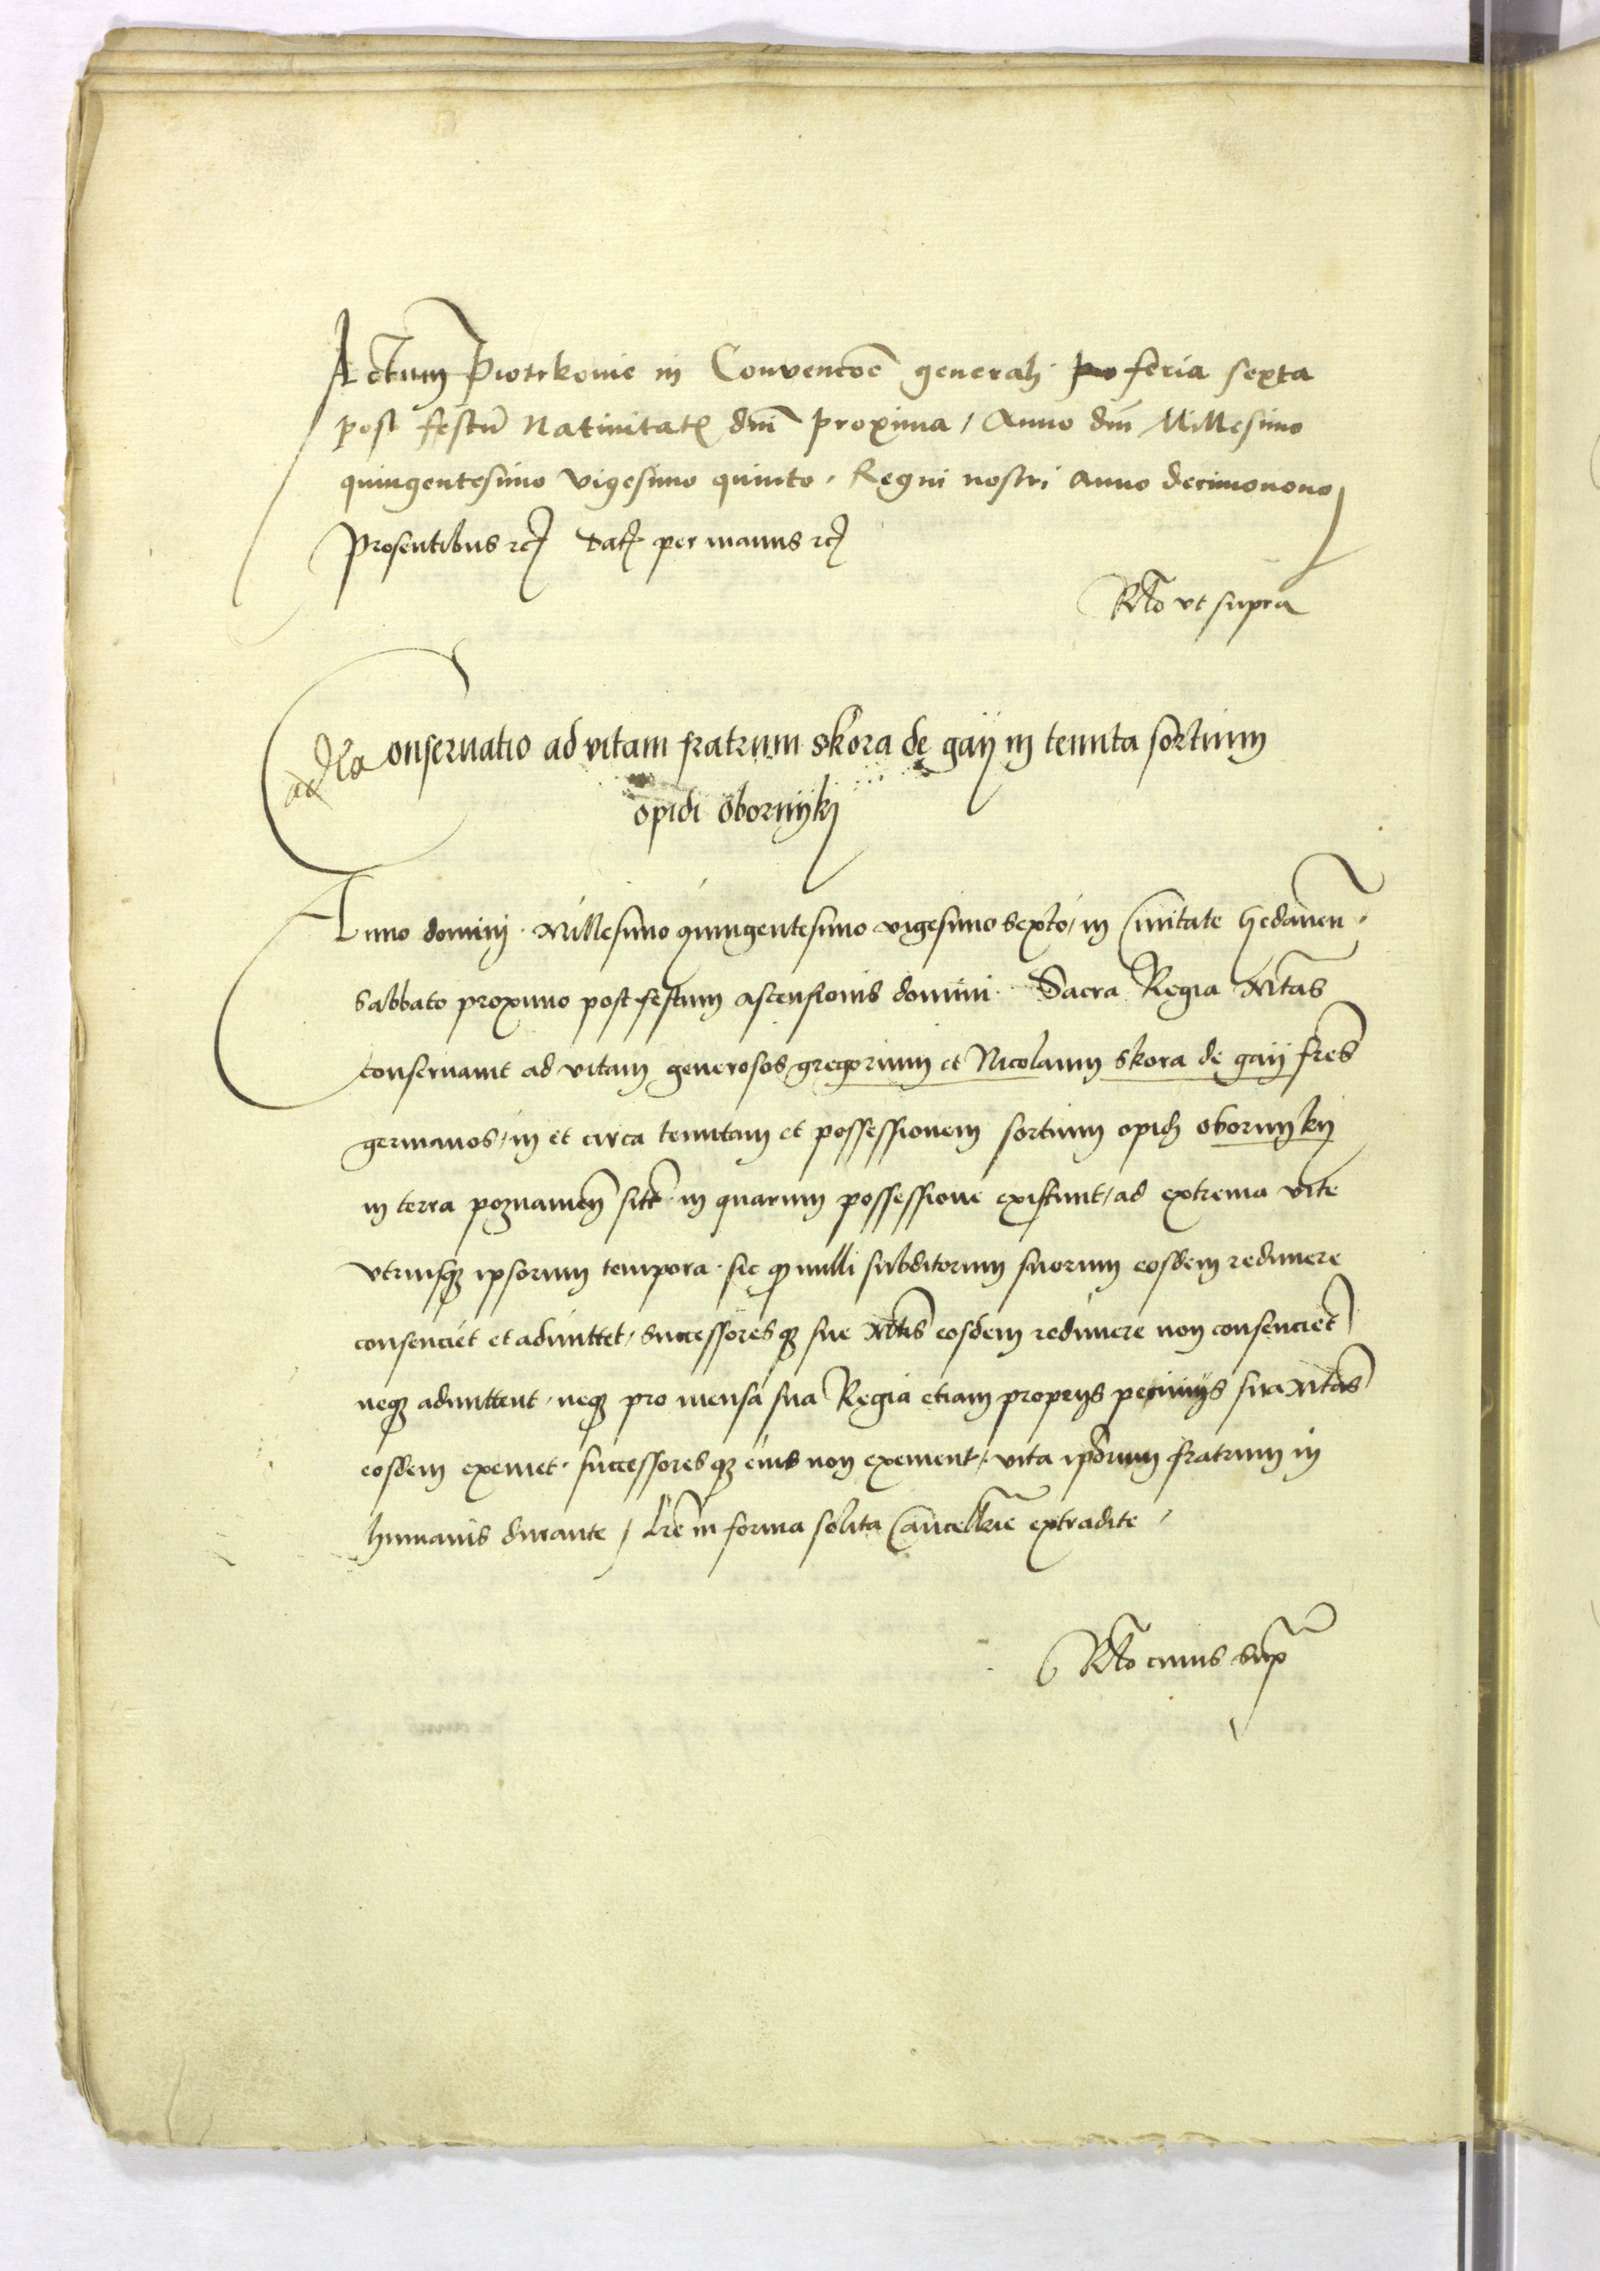 Actum Piotrkovie in Convenc͠oe generali feria sexta
post festu͠ Nativitatꝭ dni͠ proxima / Anno dni͠ Millesimo
quingentesimo vigesimo quinto. Regni nostri Anno decimonono
Presentibus ꝛc̃ Datꝭ per manus ꝛc̃
R̃to vt supra
Conservatio ad vitam fratrum skora de gaÿ in tenuta sortium
opidi oborniÿkÿ
Anno dominj Millesimo quingentesimo vigesimo sexto / in Civitate Gedanen͠
sabbato proximo post festum ascensionis domini Sacra Regia M͠tas
conservavit ad vitam generosos gregorium et Nicolaum skora de gaÿ fr͠es
germanos / in et circa tenutam et possessionem sortium opidi oborniÿkÿ
in terra poznanien͠ sit͠t in quarum possessione existunt / ad extrema vite
vtriusqꝫ ipsorum tempora sic qꝫ nulli subditorum suorum eosdem redimere
consenciet et admittet / successoresqꝫ sue M͠tis eosdem redimere non consencie͠t
neqꝫ admittent neqꝫ pro mensa sua Regia etiam proprÿs pecunÿs sua M͠tas
eosdem exemet successoresqꝫ eius non exement / vita ip͠orum fratrum in
humanis durante / L͠re in forma solita Cancell͠rie extradite
R̃to cuius sup͠